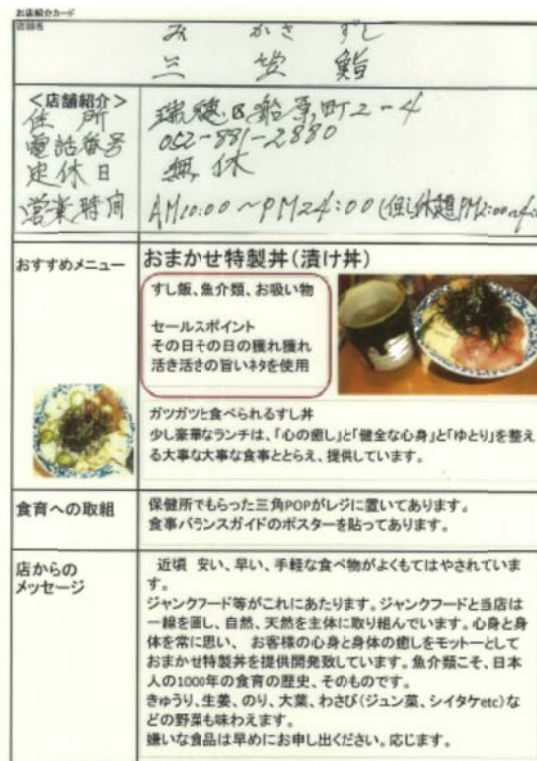 お店紹介カード
店舗名
み かさ ずし
三 笠 鮨
＜店舗紹介＞
住 所 瑞穂区船原町2-4
電話番号 052-881-2880
定休日 無休
営業時間 AM10:00～PM24:00(但し休憩PM2:00～4:00
おすすめメニュー
おまかせ特製丼(漬け丼)
すし飯、魚介類、お吸い物
セールスポイント
その日その日の獲れ獲れ
活き活きの旨いネタを使用
ガツガツと食べられるすし丼
少し豪華なランチは、「心の癒し」と「健全な心身」と「ゆとり」を整え
る大事な大事な食事ととらえ、提供しています。
食育への取組
保健所でもらった三角POPがレジに置いてあります。
食事バランスガイドのポスターを貼ってあります。
店からの
メッセージ
近頃 安い、早い、手軽な食べ物がよくもてはやされていま
す。
ジャンクフード等がこれにあたります。ジャンクフードと当店は
一線を画し、自然、天然を主体に取り組んでいます。心身と身
体を常に思い、 お客様の心身と身体の癒しをモットーとして
おまかせ特製丼を提供開発致しています。魚介類こそ、日本
人の1000年の食育の歴史、そのものです。
きゅうり、生姜、のり、大葉、わさび(ジュン菜、シイタケetc)な
どの野菜も味わえます。
嫌いな食品は早めにお申し出ください。応じます。